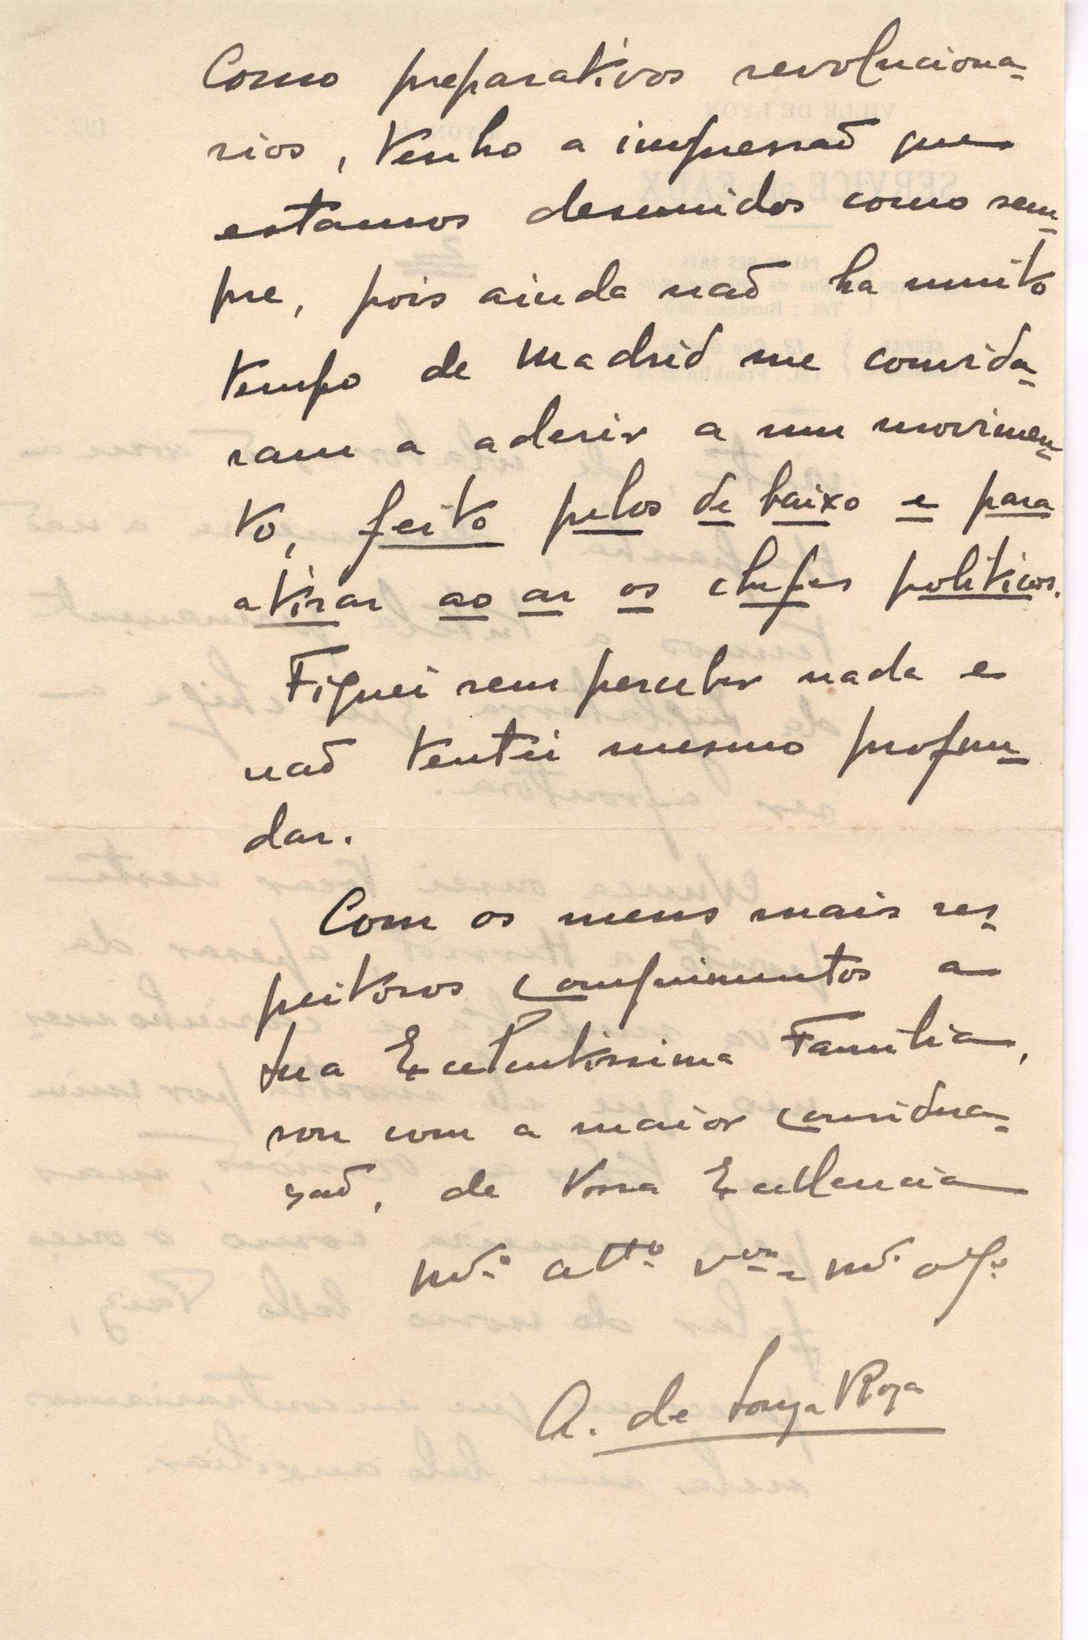 Como preparativos revoluciona-
rios, tenho a impressaõ que
estamos desunidos como sem-
pre, pois ainda naõ ha muito
tempo de Madrid me convida-
ram a aderir a um movimen-
to, feito pelos de baixo e para
atirar ao ar os chefes politicos.
Fiquei sem perceber nada e
naõ tentei mesmo profun-
dar.
Com os meus mais res-
peitosos comprimentos a
Sua Excelentissima Familia,
sou com a maior considera-
çaõ, de Vossa Excellencia
mtº attº vor e mtº obgº
A. de Souza Roza